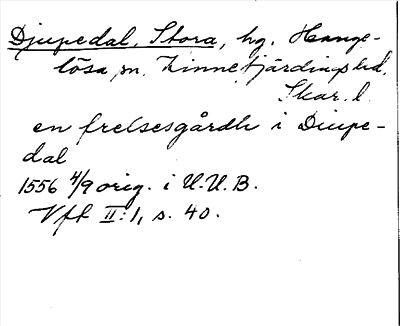 Djupedal, Stora, hg. Hange-
lösa sn. Kinnefjärdings hd.
Skar. l.
en frelsesgårdh i Diupe-
dal
1556 4/9 orig. i U.U.B.
Vft II:1, s. 40.